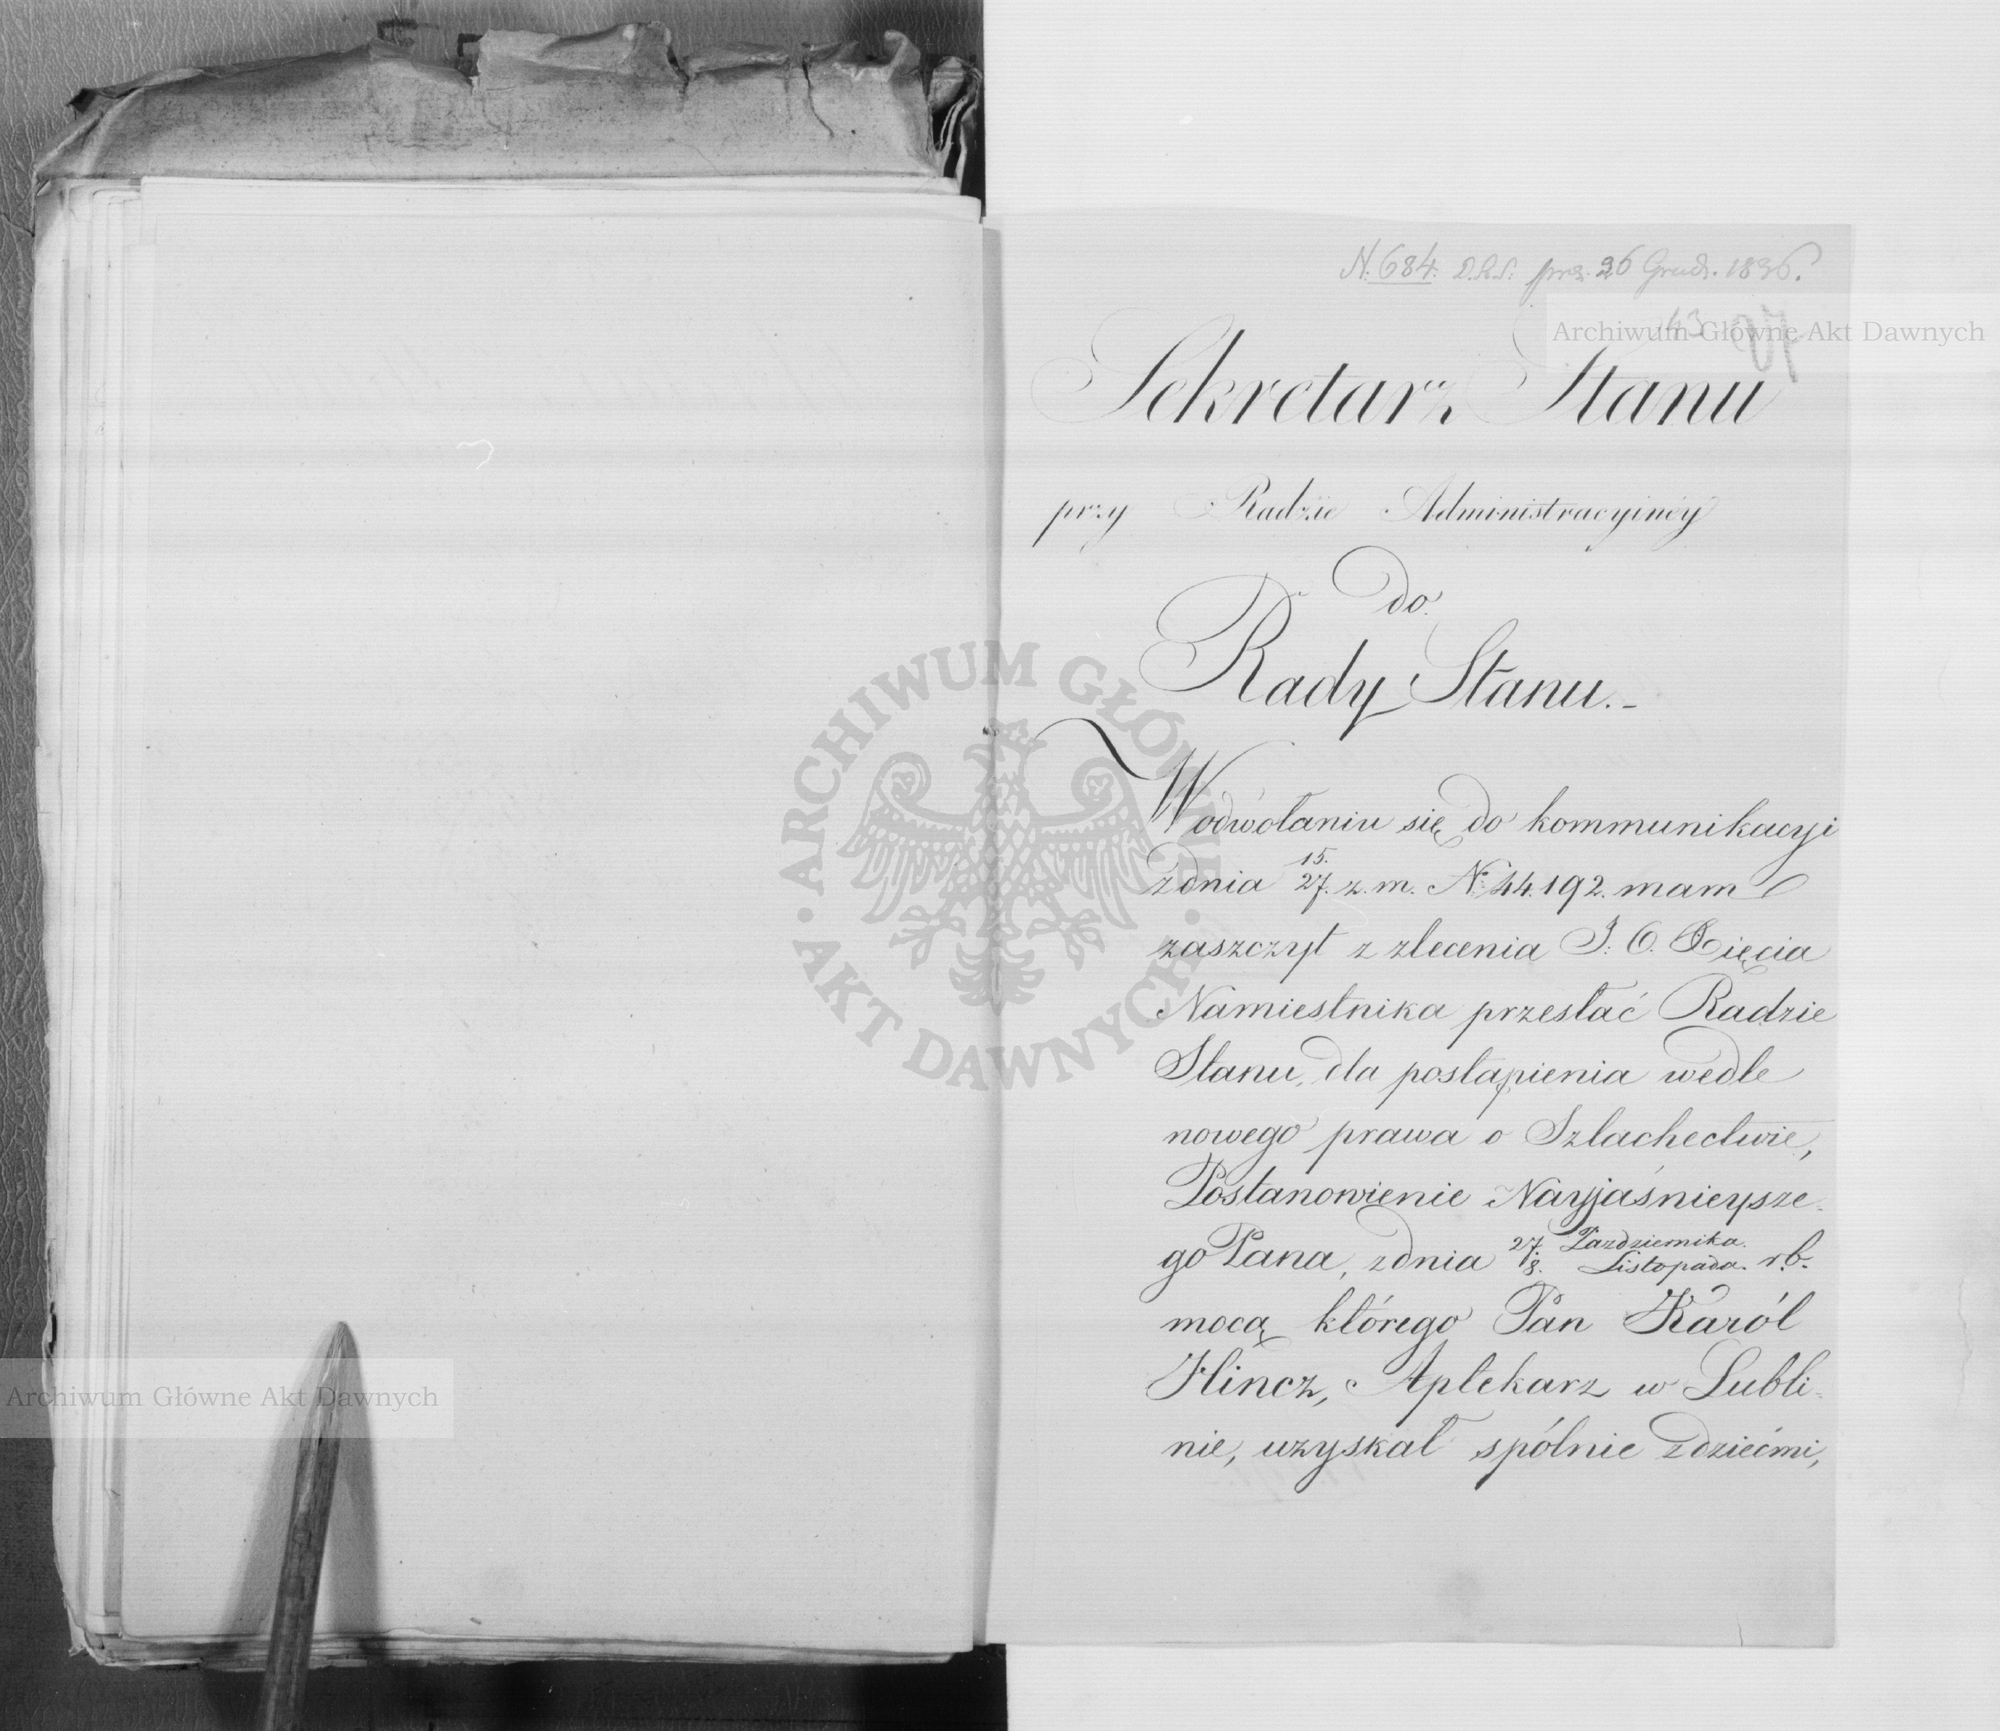 N. 684. D.R.S. prez. 26 Grud. 1836.
43
Sekretarz Stanu
przy Radzie Administracyinéy
do
Rady Stanu.-
W odwołaniu się do kommunikacyi
z dnia 15./27. z. m. N. 44.192. mam
zaszczyt z zlecenia J. O. Xięcia
Namiestnika przesłać Radzie
Stanu, dla postąpienia wedle
nowego prawa o Szlachectwie,
Postanowienie Nayjaśnieysze-
go Pana, z dnia 27/8. Października./Listopada. r.b.
mocą którego Pan Karól
Hincz, Aptekarz w Lubli-
nie, uzyskał spólnie z dziećmi,
Archiwum Główne Akt Dawnych
Archiwum Główne Akt Dawnych
ARCHIWUM GŁÓWNE AKT DAWNYCH